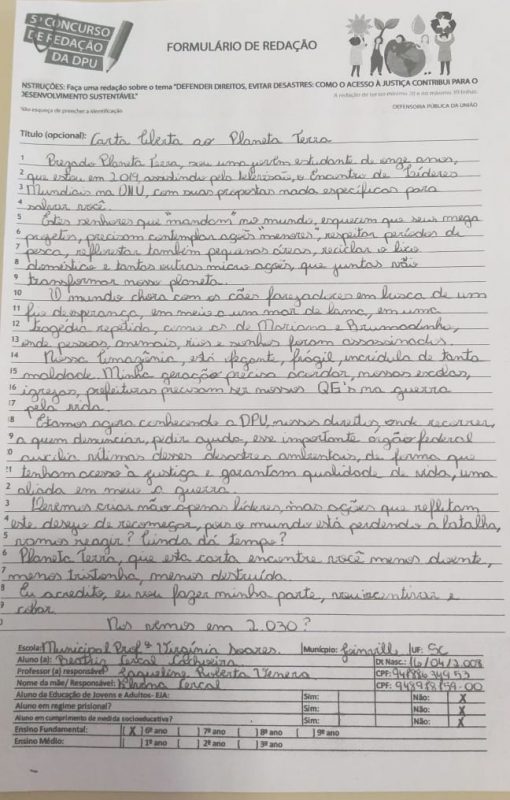 5º CONCURSO
DE REDAÇÃO
DA DPU
FORMULÁRIO DE REDAÇÃO
INSTRUÇÕES: Faça uma redação sobre o tema "DEFENDER DIREITOS, EVITAR DESASTRES: COMO O ACESSO À JUSTIÇA CONTRIBUI PARA O
DESENVOLVIMENTO SUSTENTÁVEL"
A redação de ter no mínimo 20 e no máximo 30 linhas.
Não esqueça de preencher a identificação
DEFENSORIA PÚBLICA DA UNIÃO
Título (opcional): Carta Aberta ao Planeta Terra
1 Prezado Planeta Terra, sou uma jovem estudante de onze anos,
2 que estou em 2019 assistindo pela televisão, o Encontro de Líderes
3 Mundiais na ONU, com suas propostas nada específicas para
4 salvar você.
5 Estes senhores que "mandam" no mundo, esquecem que seus mega
6 projetos, precisam contemplar ações "menores", respeitar períodos de
7 pesca, reflorestar também pequenas áreas, reciclar o lixo
8 doméstico e tantas outras micro ações, que juntas vão
9 transformar nosso planeta.
10 O mundo chora com os cães farejadores em busca de um
11 fio de esperança, em meio a um mar de lama, em uma
12 tragédia repetida, como as de Mariana e Brumadinho,
13 onde pessoas, animais, rios e sonhos foram assassinados.
14 Nossa Amazônia, está ofegante, frágil, incrédula de tanta
15 maldade. Minha geração precisa acordar, nossas escolas,
16 igrejas, prefeituras precisam ser nossos QG's na guerra
17 pela vida.
8 Estamos agora conhecendo a DPU, nossos direitos, onde recorrer,
9 a quem denunciar, pedir ajuda, esse importante órgão federal
0 auxilia vítimas desses desastres ambientais, de forma que
1 tenham acesso à justiça e garantam qualidade de vida, uma
2 aliada em meio a guerra.
3 Queremos criar não apenas líderes, mas ações que reflitam
4 este desejo de recomeçar, pois o mundo está perdendo a batalha,
5 vamos reagir? Ainda dá tempo?
6 Planeta Terra, que esta carta encontre você menos doente,
7 menos tristonha, menos destruída.
8 Eu acredito, eu vou fazer minha parte, vou incentivar e
9 cobrar.
0 Nos vemos em 2.030?
Escola: Municipal Profª Virgínia Soares. Município: Joinville UF: SC
Aluno (a): Beatriz Cercal Dt Nasc.: 16/04/2008
Professor (a) responsável: Jaqueline Roberta Venera CPF:
Nome da mãe/ Responsável: Cercal CPF:
Aluno da Educação de Jovens e Adultos- EJA: Sim: Não: X
Aluno em regime prisional? Sim: Não: X
Aluno em cumprimento de medida socioeducativa? Sim: Não: X
Ensino Fundamental: [X] 6º ano [ ] 7º ano [ ] 8º ano [ ] 9º ano
Ensino Médio: [ ] 1º ano [ ] 2º ano [ ] 3º ano